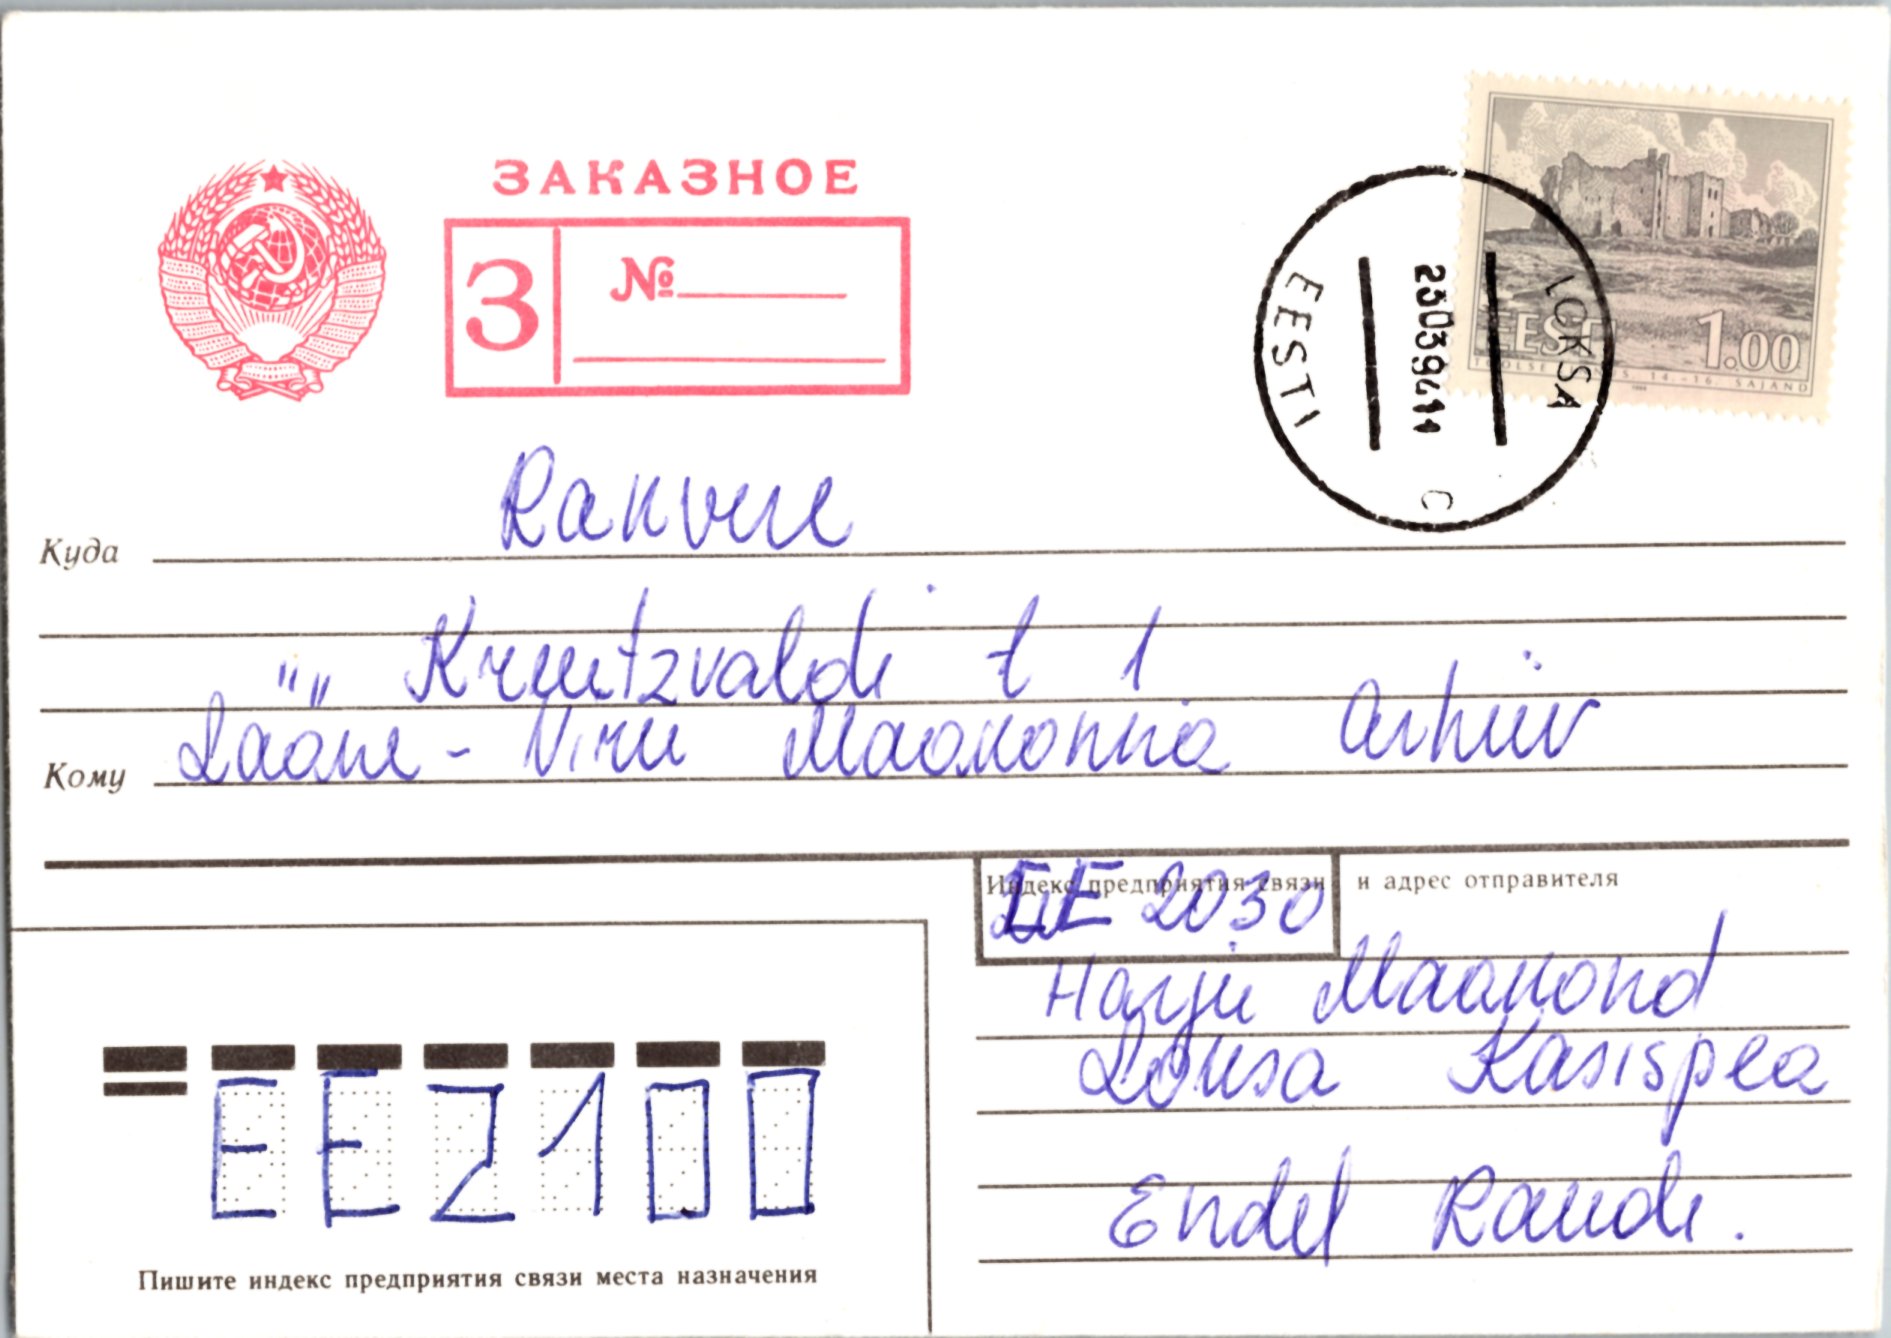 ЗАКАЗНОЕ
З №
EESTI 1.00
14.-16. SAJAND
LOKSA
25039411
EESTI
C
Куда Rakvere
Kreutzvaldi t 1
Кому Lääne-Viru Maakonna Arhiiv
Индекс предприятия связи и адрес отправителя
EE 2030
Harju Maakond
Loksa Kasispea
Endel Raudi.
EE2100
Пишите индекс предприятия связи места назначения